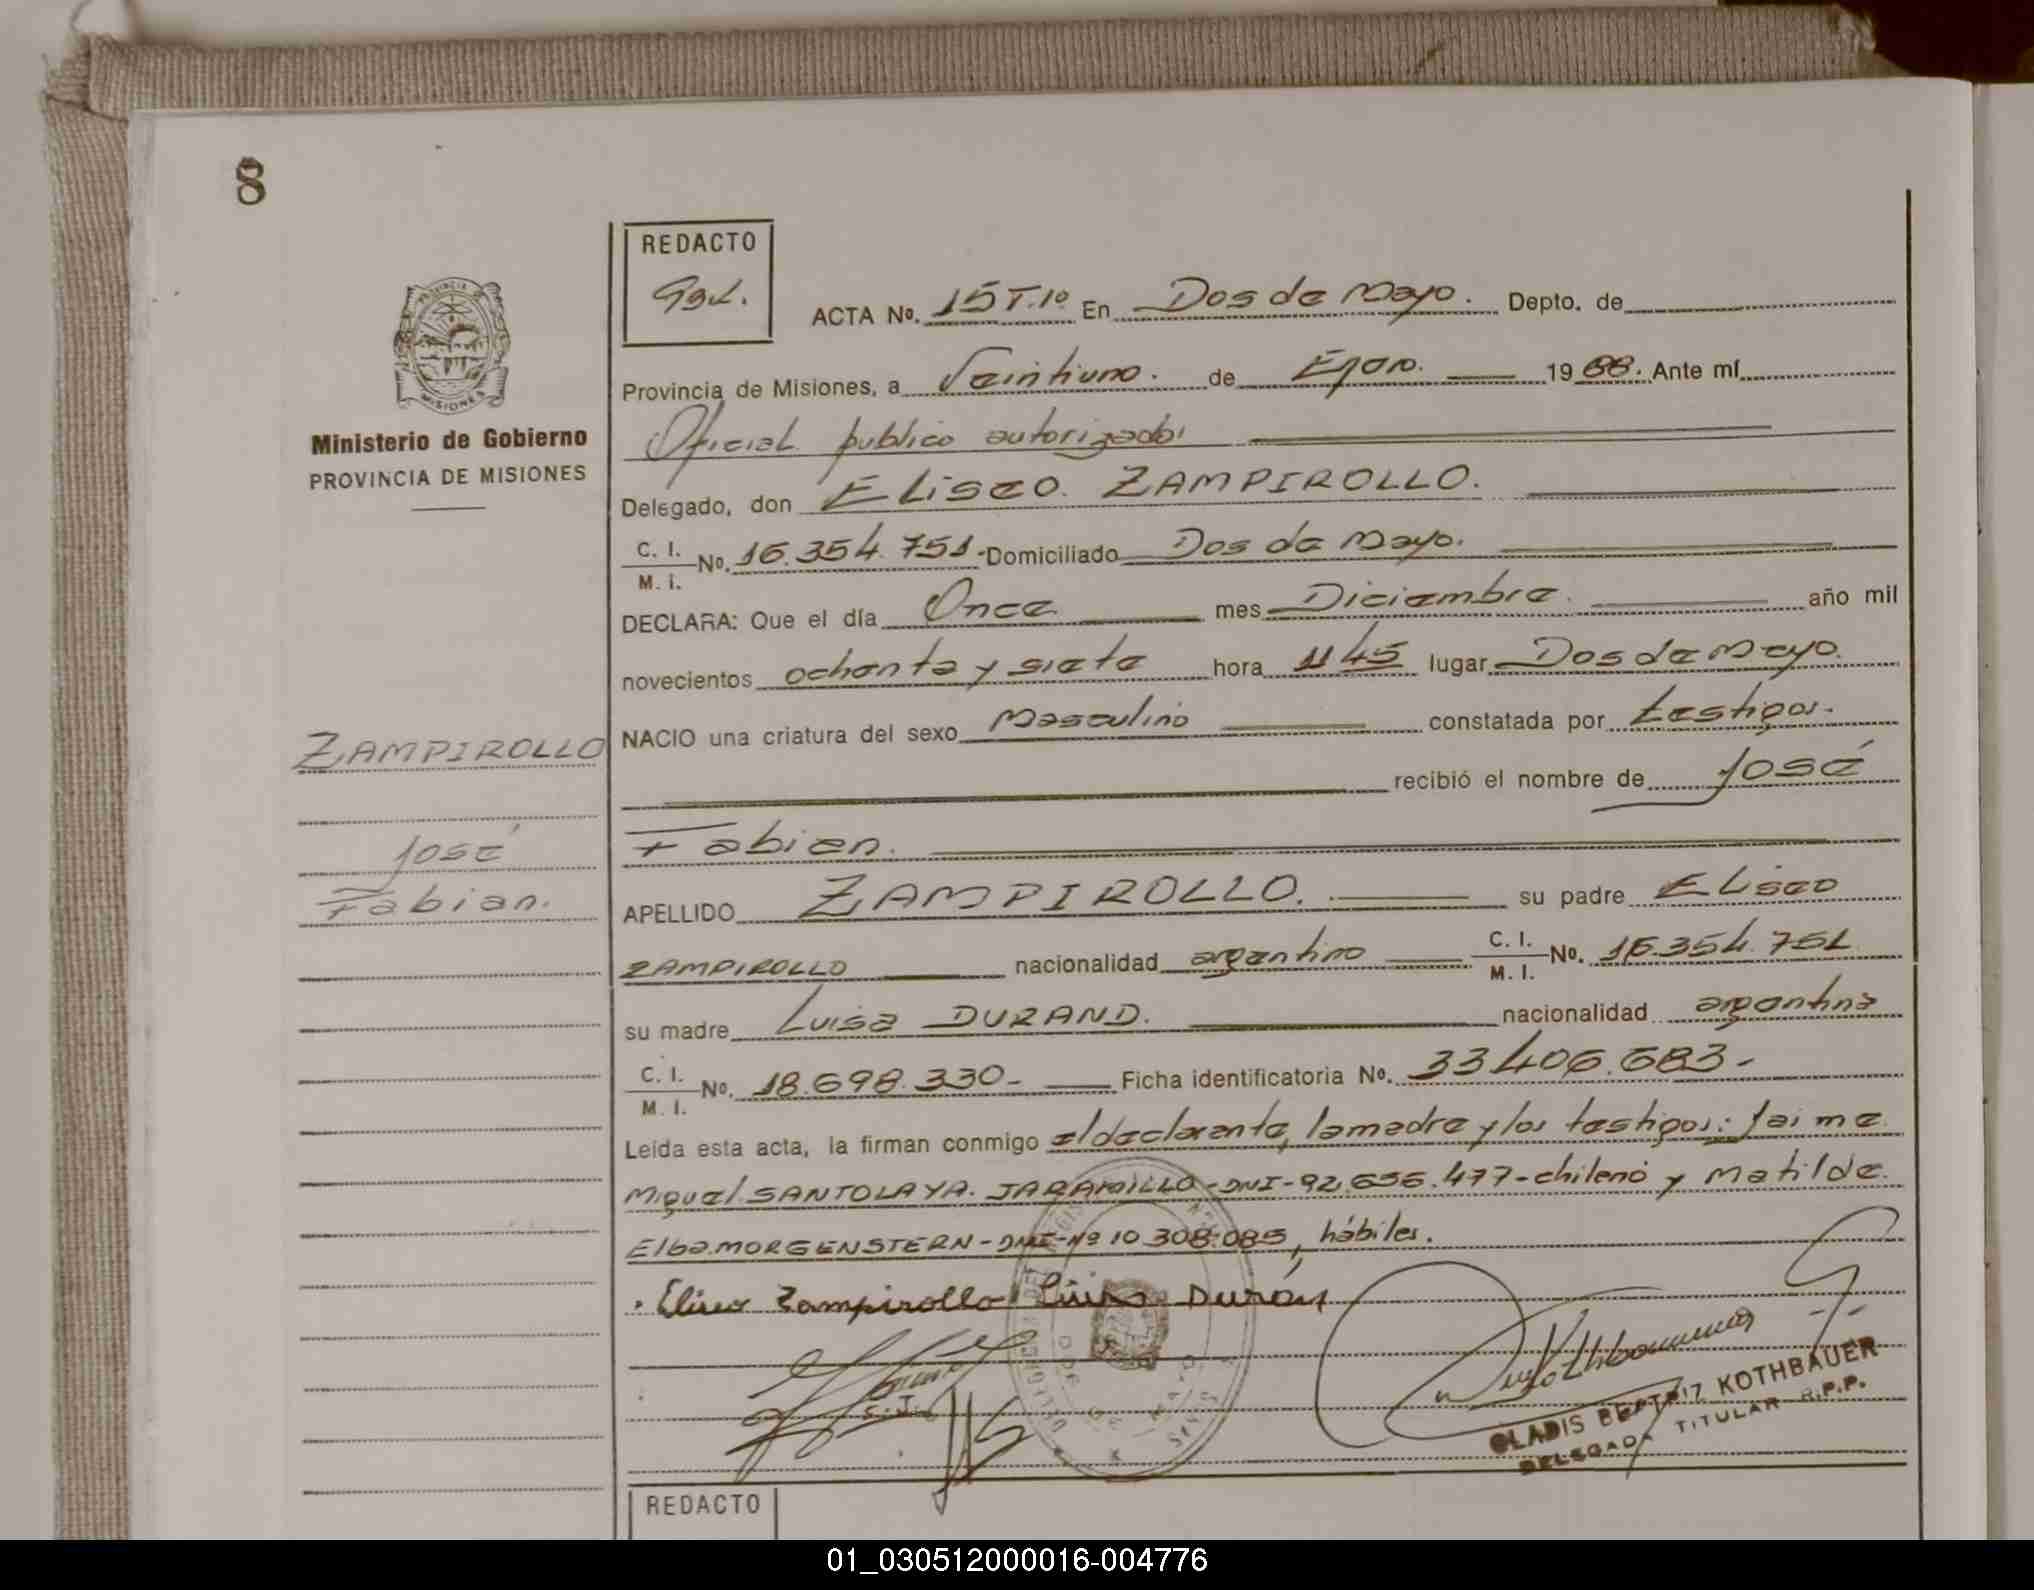 8
REDACTO
Ggk.
ACTA No. 15 T.1º En Dos de Mayo. Depto. de
Provincia de Misiones, a Veintiuno. de Enero. 1988. Ante mí
Oficial publico autorizado:
Ministerio de Gobierno
PROVINCIA DE MISIONES
Delegado, don Eliseo. ZAMPIROLLO.
C. I. / M. I. No. 16.354.751- Domiciliado Dos de Mayo.
DECLARA: Que el día Once mes Diciembre. año mil
novecientos ochenta y siete hora 11 45 lugar Dos de Mayo.
NACIO una criatura del sexo Masculino constatada por testigos.
ZAMPIROLLO
recibió el nombre de José
José
Fabian.
Fabian.
APELLIDO ZAMPIROLLO. su padre Eliseo
ZAMPIROLLO nacionalidad argentino C. I. / M. I. No. 16.354.751
su madre Luisa DURAND. nacionalidad argentina
C. I. / M. I. No. 18.698.330- Ficha identificatoria No. 33 406.683-
Leída esta acta, la firman conmigo el declarante, la madre y los testigos: Jaime
Miguel SANTOLAYA. JARAMILLO-DNI-92.656.477-chileno y Matilde
Elba MORGENSTERN-DNI-Nº 10 308.085, hábiles.
Eliseo Zampirollo Luisa Durán
GLADIS BEATRIZ KOTHBAUER
DELEGADA TITULAR R.P.P.
REDACTO
01_030512000016-004776